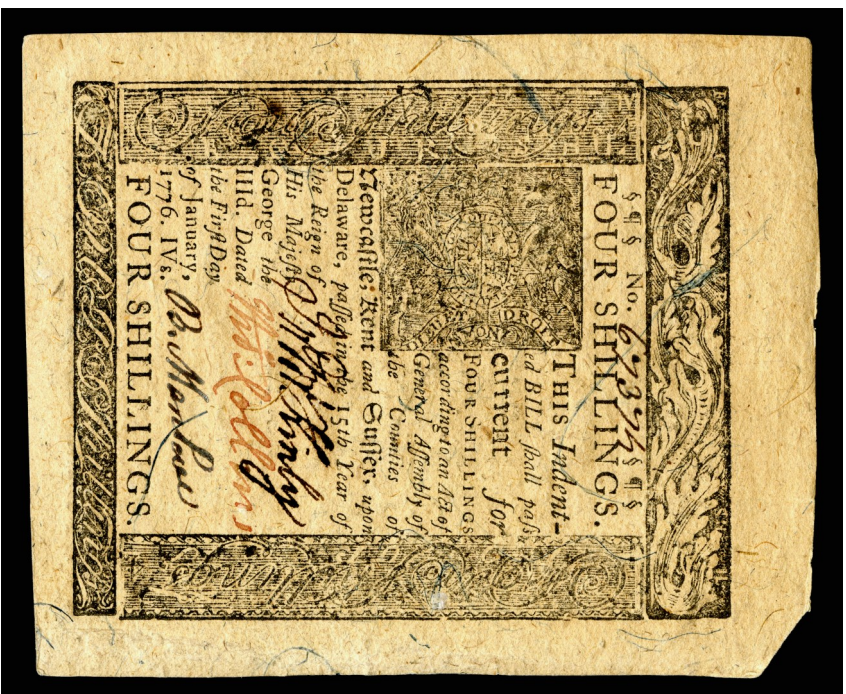 Four Shillings
§¶§ No. 67373 §¶§
FOUR SHILLINGS.
THIS Indent-
ed BILL ſhall paſs
current for
FOUR SHILLINGS
according to an Act of
General Aſſembly of
the Counties of
DIEU ET MON DROIT
Newcaſtle, Kent and Suſſex, upon
Delaware, paſſed in the 15th Year of
the Reign of
His Majeſty
George the
IIId. Dated
the Firſt Day
of January,
1776. IVs.
Wm Kirby
Tho: Collins
Bn Manlove
FOUR SHILLINGS.
Four Shillings